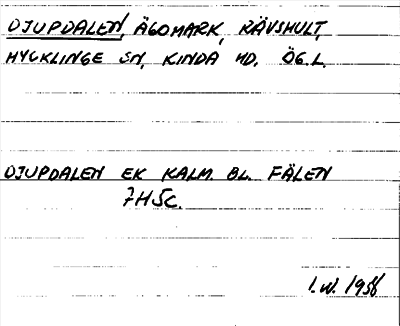 DJUPDALEN, ÄGOMARK, RÄVSHULT,
HYCKLINGE SN, KINDA HD. ÖG.L.
DJUPDALEN EK KALM. BL. FÄLEN
7H5c.
I.W. 1958